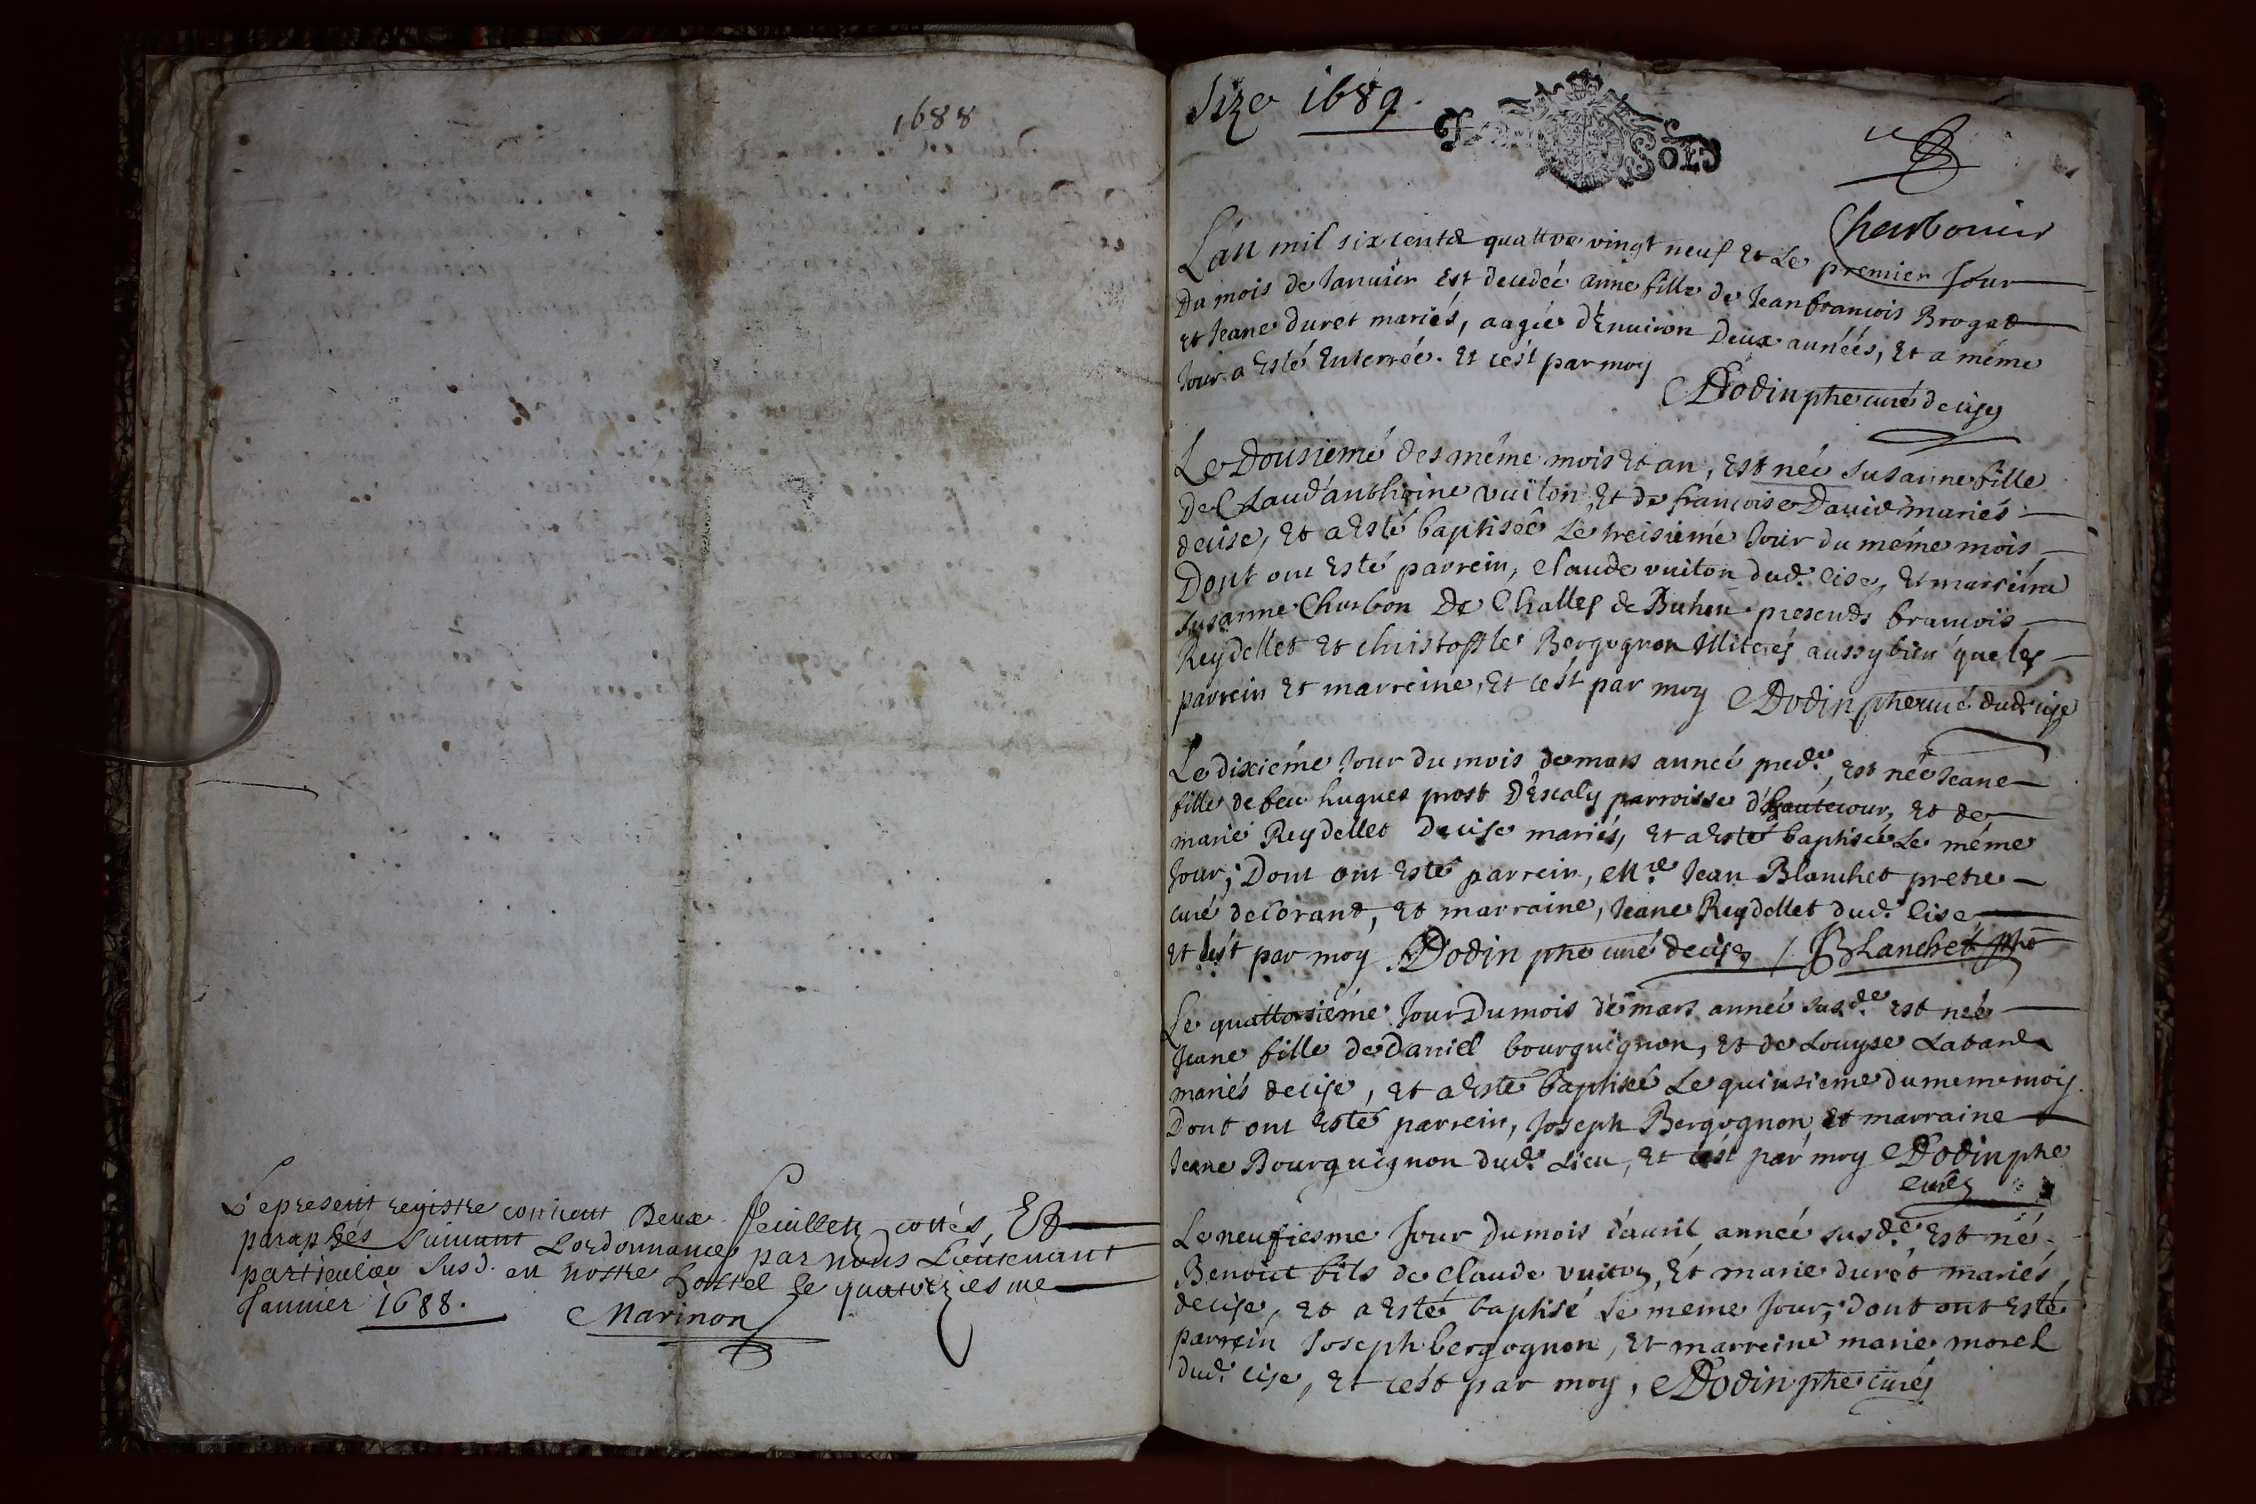 1688
Le present registre contient Deux feuillets cottés Et
paraphés suivant Lordonnance par nous Lieutenant
particulier susd. en nostre hostel le quatorziesme
Januier 1688.
Marinon
Size 1689.
SOLS
Charbonier
L'an mil six cents quattre vingt neuf et Le premier Jour
Du mois de Januier Est decedée anne fille de Jean francois Brogat
et Jeane duret mariés, aagée d'Enuiron Deux années, Et a méme
Jour a Esté Enterrée. Et cést par moy
Dodin pbre curé de cise
Le Dousiéme des méme mois Et an, Est née Susanne fille
De Claud'anthoine vuiton, Et de francoise Dauid mariés
de cise, Et a Esté baptisée Le treisiéme Jour du méme mois
Dont ont Esté parrein, Claude vuiton dud. Cise, Et marreine
Susanne Charbon De Challes de presents francois
Reydellet Et christoffle Bergognon Illiterés aussy bien que les
parrein Et marreine, Et cést par moy Dodin pbre curé dud. cise
Le dixiéme Jour du mois de mars année pred.e, Est née Jeane
fille de feu hugues prost D'Escaly parroisse d'hautecour, Et de
marie Reydellet De cise mariés, Et a Esté baptisée Le méme
Jour; Dont ont Esté parrein, M.re Jean Blanchet pretre
curé de Corant, Et marraine, Jeane Reydellet dud. Cise
Et cést par moy Dodin pbre curé de cise / Blanchet pbre
Le quattorsiéme Jour Du mois de mars année susd.e est née
Jeane fille de Daniel bourguignon, Et de Louyse Labard
mariés de cise, Et a Esté baptisée Le quinsieme du meme mois
Dont ont Esté parrein, Joseph Bergognon, et marraine
Jeane Bourguignon dud. Lieu, Et cést par moy Dodin pbre
curé
Le neufiesme Jour Du mois d'auril année susd.e, Est né
Benoist fils de Claude vuiton, Et marie duret mariés
de cise, Et a Esté baptisé Le meme Jour; dont ont Esté
parrein Joseph bergognon, Et marreine marie morel
dud. cise, Et cést par moy, Dodin pbre curé